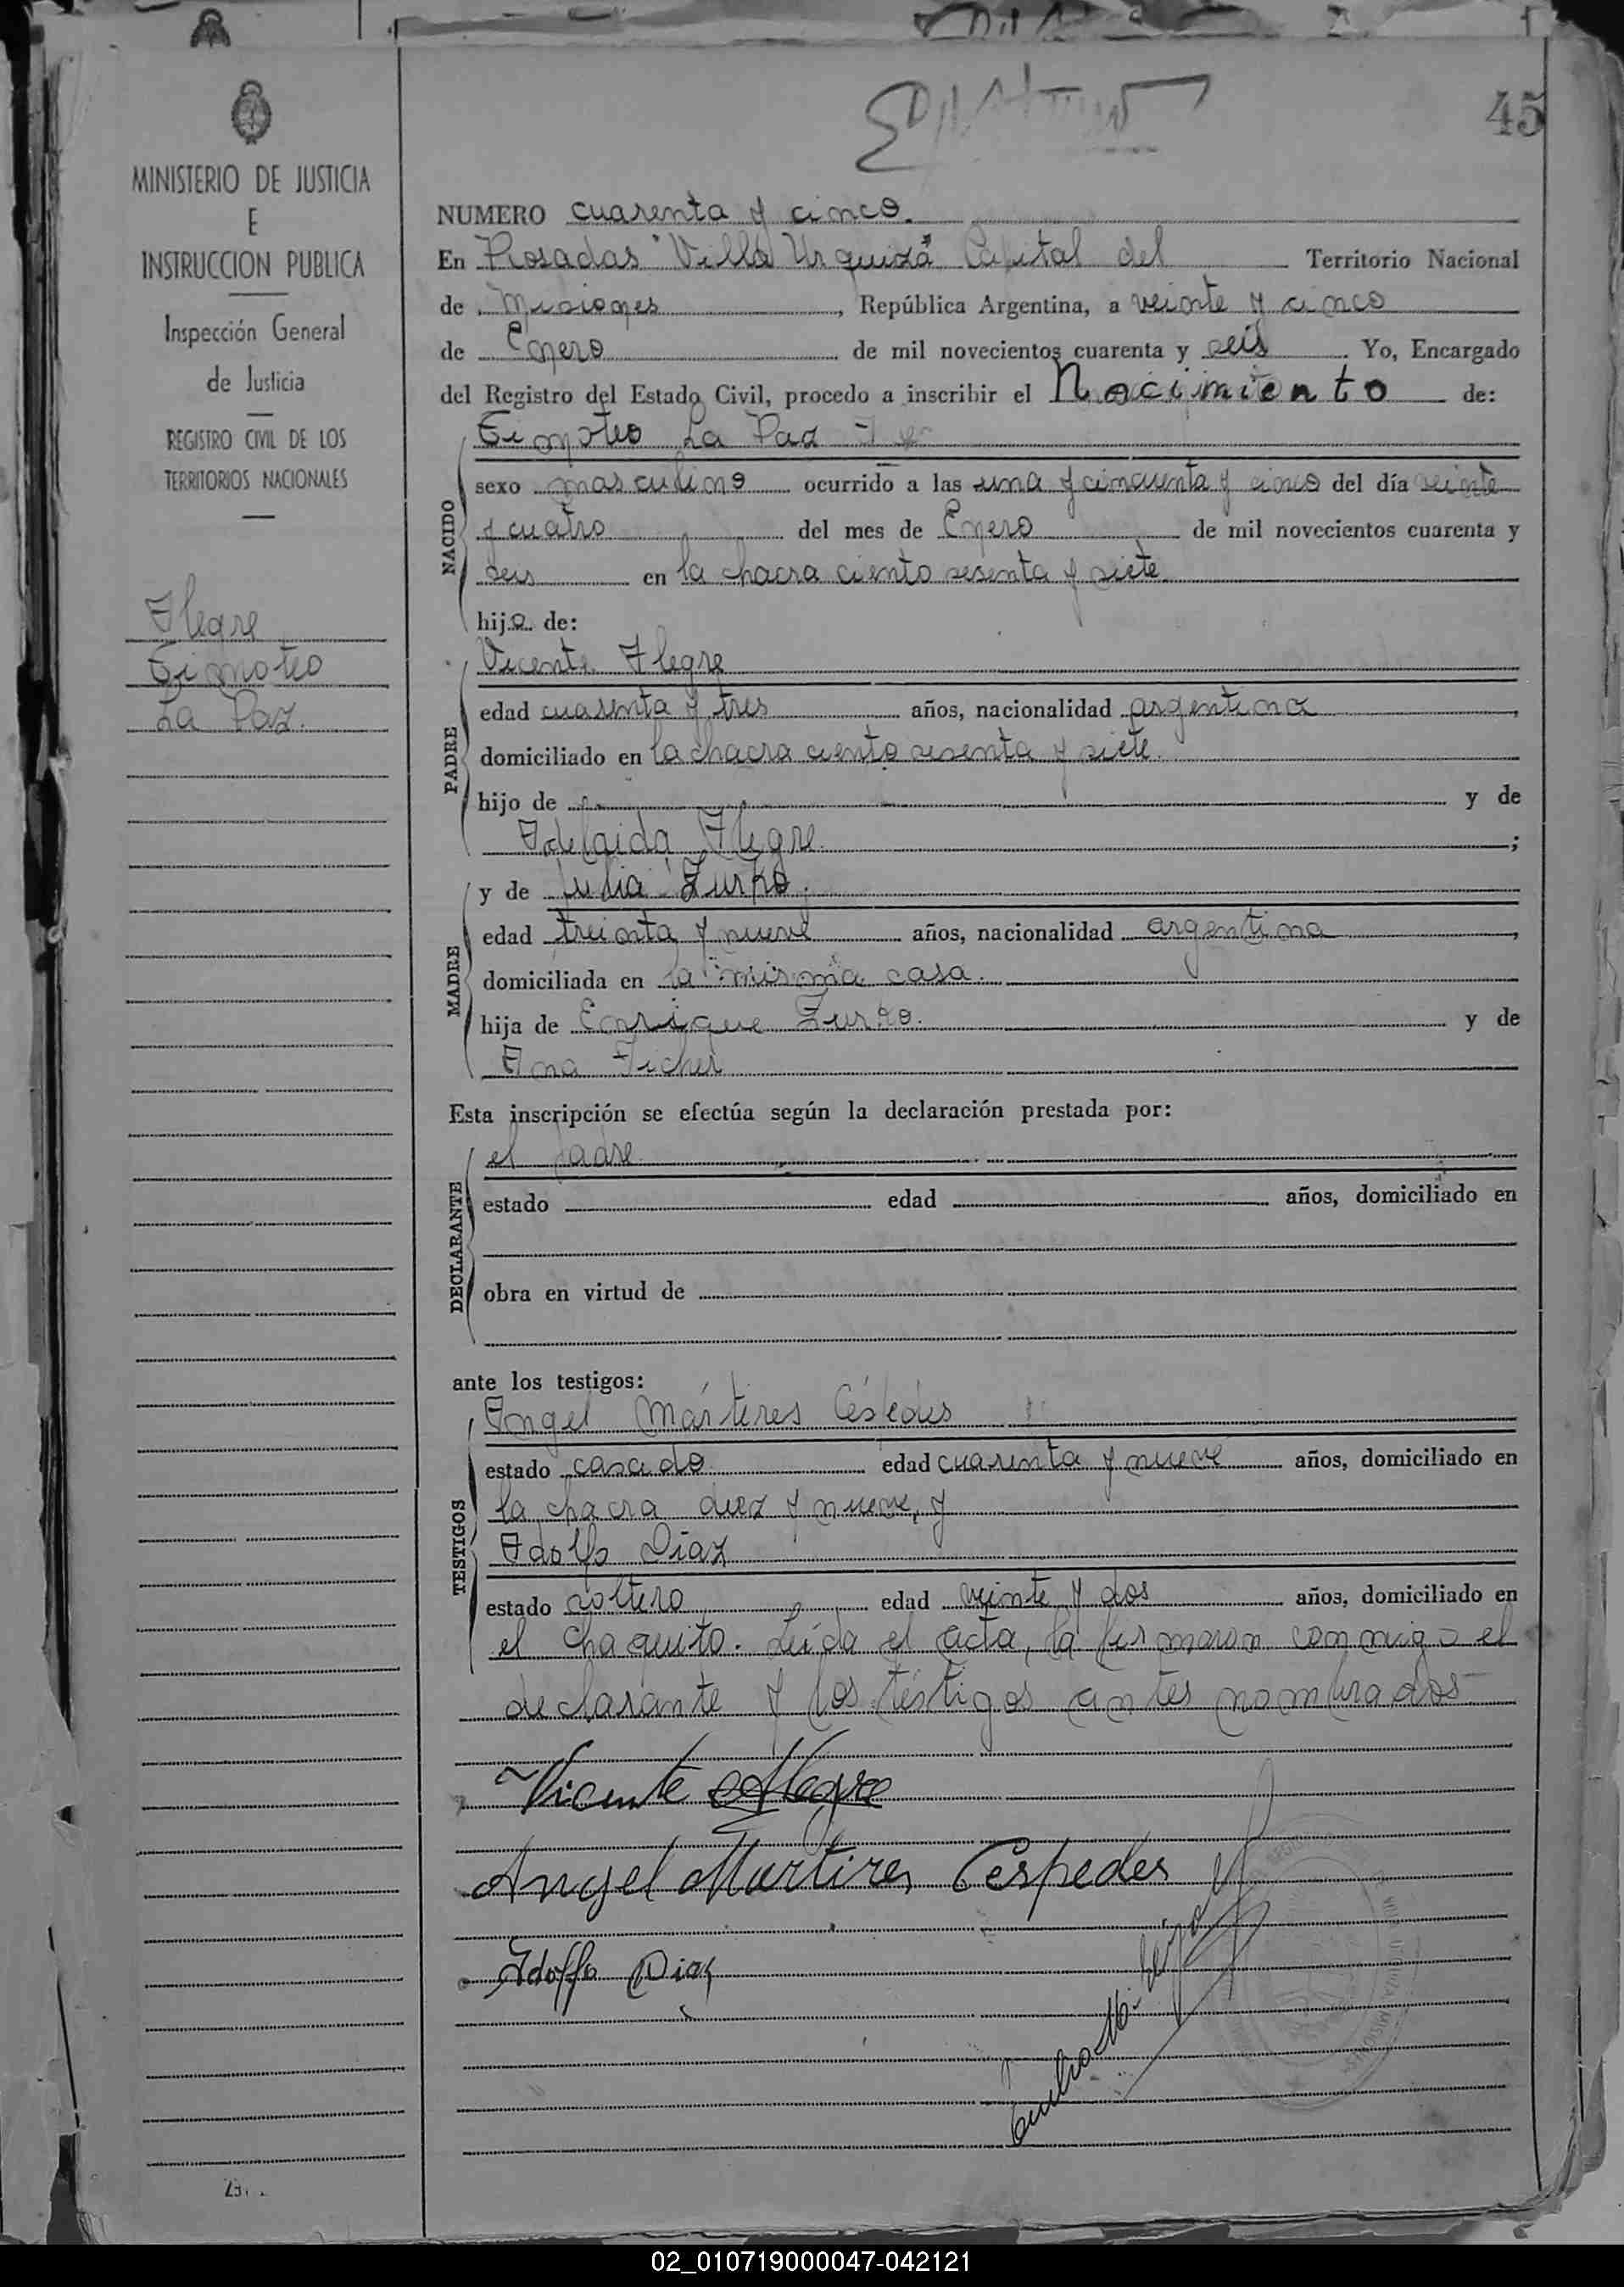 45
MINISTERIO DE JUSTICIA
E
INSTRUCCION PUBLICA
Inspección General
de Justicia
REGISTRO CIVIL DE LOS
TERRITORIOS NACIONALES
Alegre
Timoteo
La Paz.
NUMERO cuarenta y cinco.
En Posadas "Villa Urquiza" Capital del Territorio Nacional
de Misiones, República Argentina, a veinte y cinco
de Enero de mil novecientos cuarenta y seis. Yo, Encargado
del Registro del Estado Civil, procedo a inscribir el Nacimiento de:
Timoteo La Paz
NACIDO
sexo masculino ocurrido a las una y cincuenta y cinco del día veinte
y cuatro del mes de Enero de mil novecientos cuarenta y
seis en la chacra ciento sesenta y siete
hijo de:
Vicente Alegre
PADRE
edad cuarenta y tres años, nacionalidad argentina,
domiciliado en la chacra ciento sesenta y siete.
hijo de y de
Adelaida Alegre;
y de Julia Zurko.
MADRE
edad treinta y nueve años, nacionalidad argentina,
domiciliada en la misma casa.
hija de Enrique Zurko. y de
Ana Ficher
Esta inscripción se efectúa según la declaración prestada por:
el padre
DECLARANTE
estado edad años, domiciliado en
obra en virtud de
ante los testigos:
Angel Mártires Céspedes
TESTIGOS
estado casado edad cuarenta y nueve años, domiciliado en
la chacra diez y nueve, y
Adolfo Diaz
estado soltero edad veinte y dos años, domiciliado en
el Chaquito. Leída el acta, la firmaron conmigo el
declarante y los testigos antes nombrados
Vicente Alegre
Angel Martires Cespedes
Adolfo Diaz
02_010719000047-042121